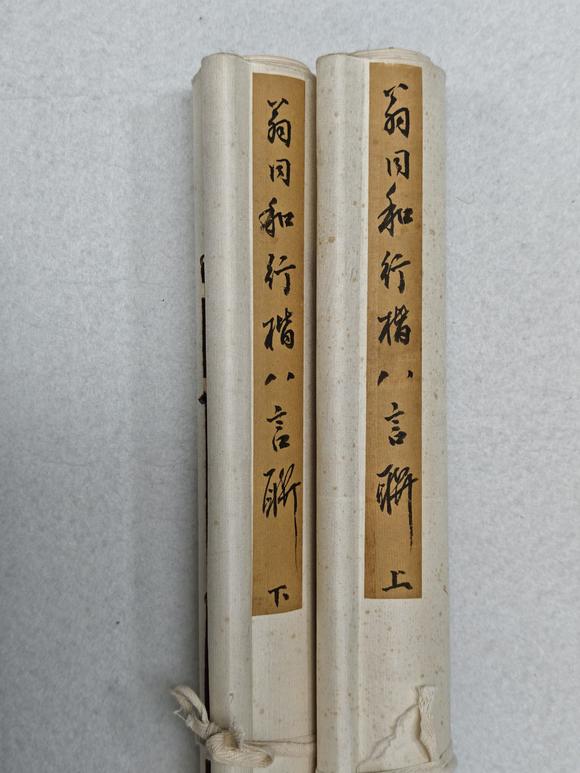 翁同和行楷八言聯 上
翁同和行楷八言聯 下